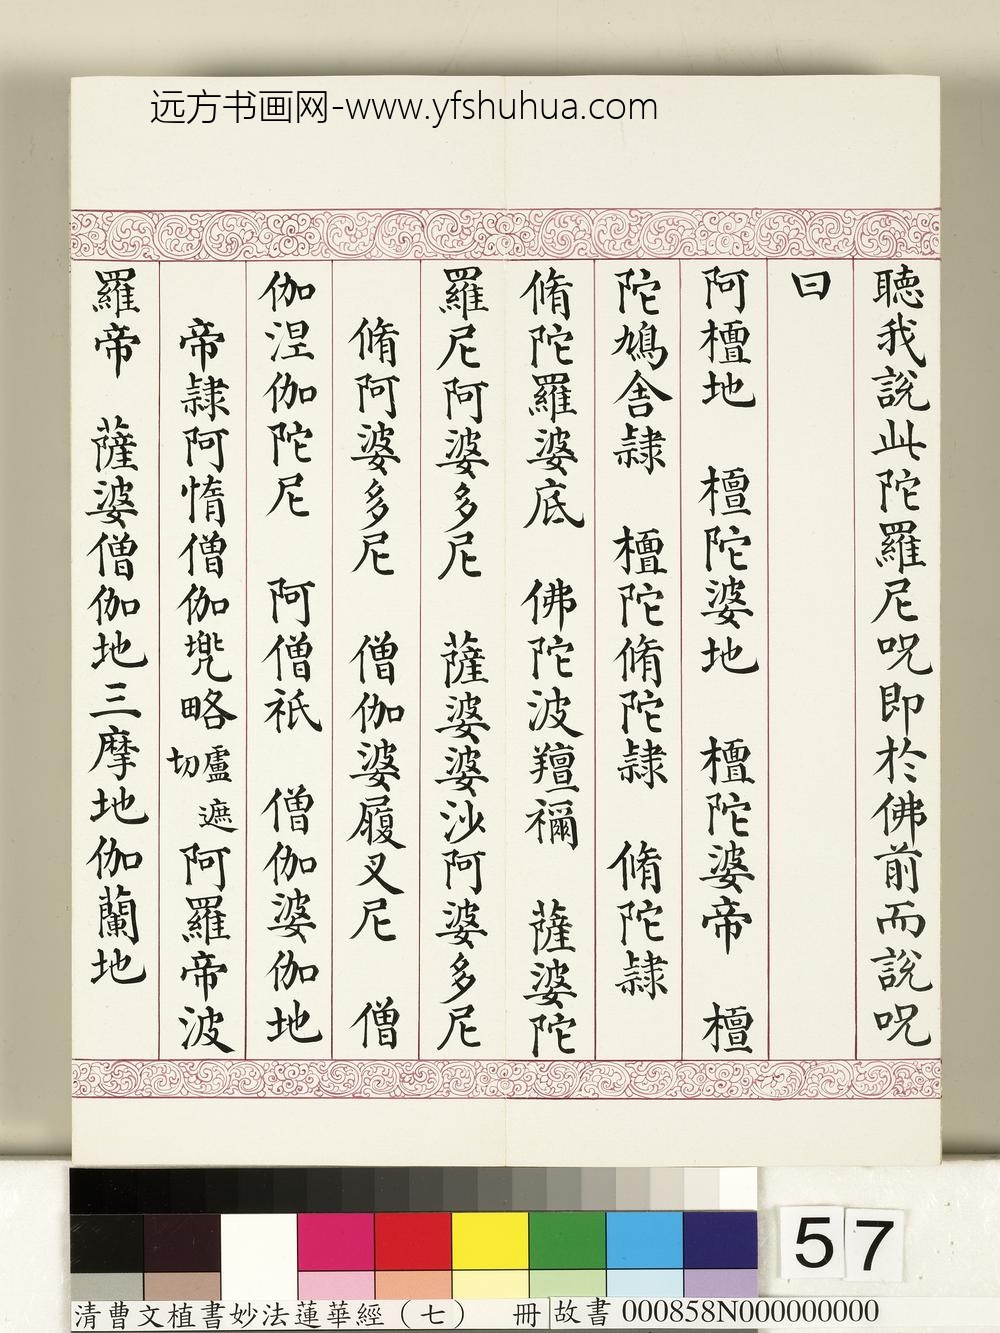 远方书画网-www.yfshuhua.com
聽我說此陀羅尼呪即於佛前而說呪
曰
阿檀地　檀陀婆地　檀陀婆帝　檀
陀鳩舍隸　檀陀脩陀隸　脩陀隸
脩陀羅婆底　佛陀波羶禰　薩婆陀
羅尼阿婆多尼　薩婆婆沙阿婆多尼
脩阿婆多尼　僧伽婆履叉尼　僧
伽涅伽陀尼　阿僧祇　僧伽婆伽地
帝隸阿惰僧伽兠略盧遮切阿羅帝波
羅帝　薩婆僧伽地三摩地伽蘭地
57
清曹文植書妙法蓮華經（七）　冊 故書 000858N000000000